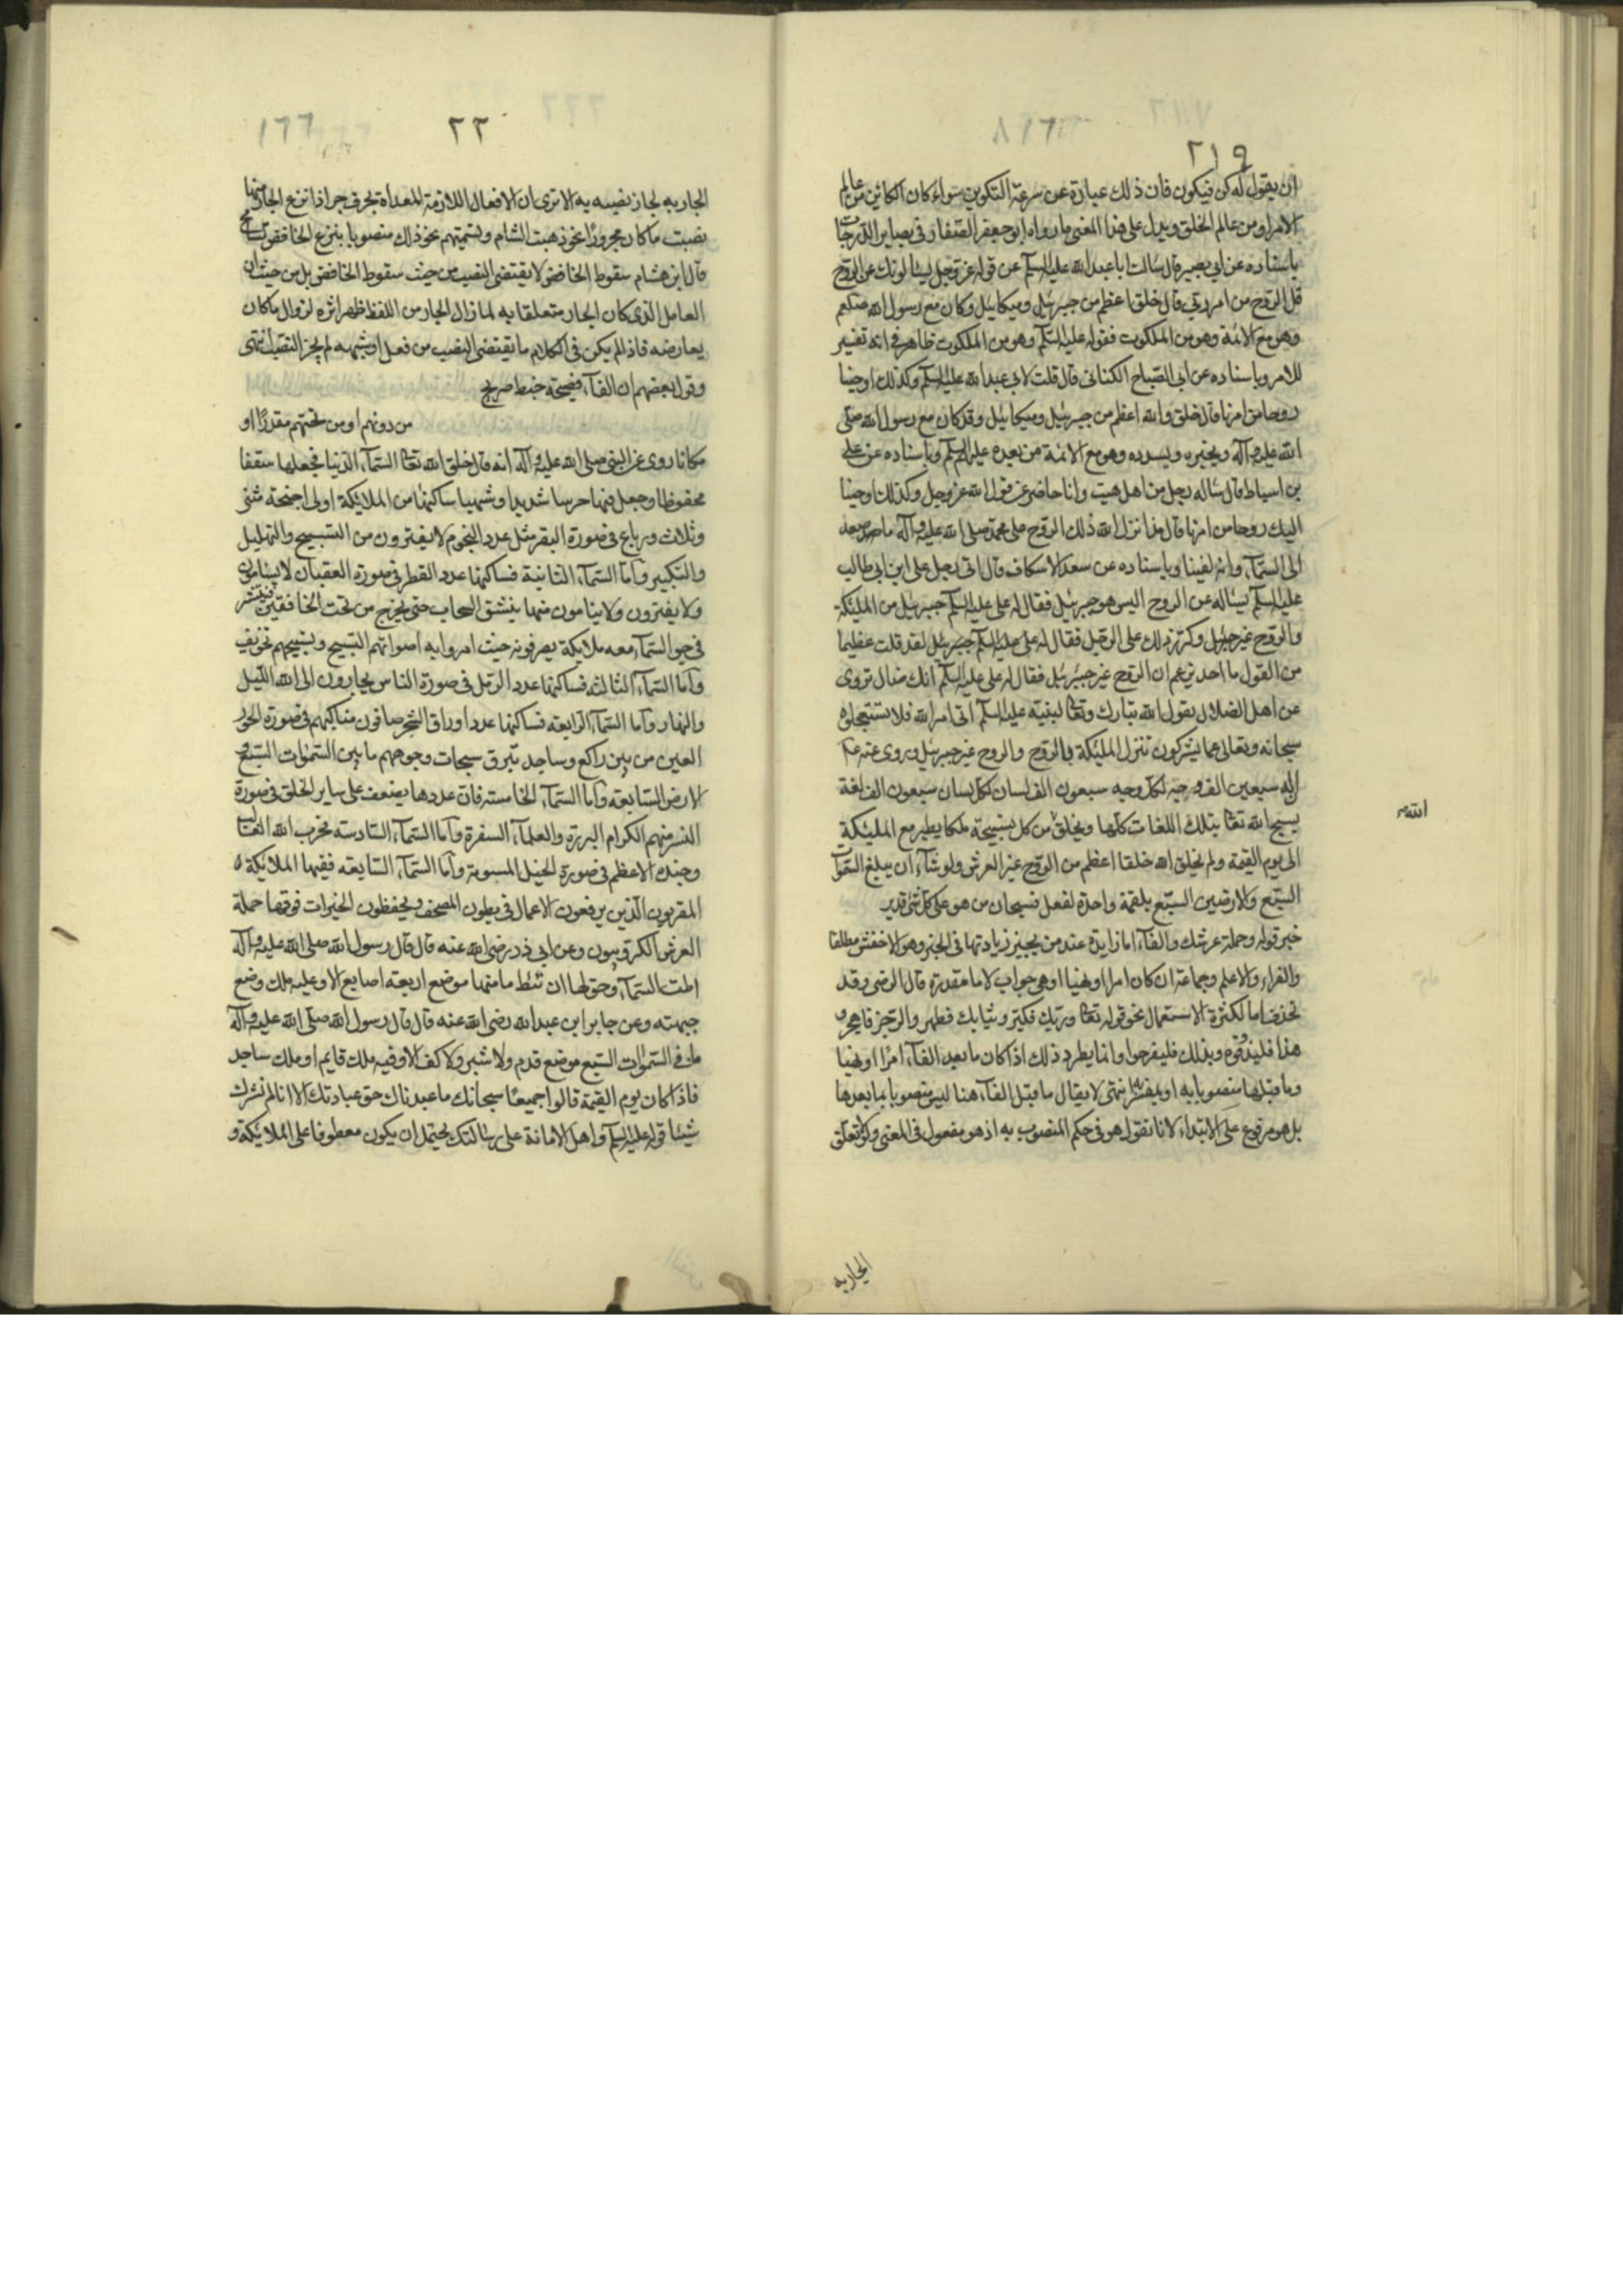 ٢١٩
ان يقول له كن فيكون فان ذلك عبارة عن سرعة التكوين سواء كان الكائن من عالم
الامر او من عالم الخلق ويدل على هذا المعنى ما رواه ابو جعفر الصفار في بصاير الدرجات
باسناده عن ابي بصير قال سالت ابا عبد الله عليه السلم عن قوله عز وجل يسالونك عن الروح
قل الروح من امر ربي قال خلق اعظم من جبرئيل وميكائيل وكان مع رسول الله صلعم
وهو مع الائمة وهو من الملكوت فقوله عليه السلم وهو من الملكوت ظاهر في انه تفسير
للامر وباسناده عن ابي الصباح الكناني قال قلت لابي عبد الله عليه السلم وكذلك اوحينا
روحا من امرنا قال خلق والله اعظم من جبرئيل وميكائيل وقد كان مع رسول الله صلى
الله عليه وآله ويخبره ويسدده وهو مع الائمة من بعده عليهم السلم وباسناده عن على
بن اسباط قال ساله رجل من اهل هيت وانا حاضر عن قول الله عز وجل وكذلك اوحينا
اليك روحا من امرنا قال مذ انزل الله ذلك الروح على محمد صلى الله عليه وآله ما صعد
الى السمآء وانه لفينا وباسناده عن سعد الاسكاف قال اتى رجل على ابن ابي طالب
عليه السلم يساله عن الروح اليس هو جبرئيل فقال له على عليه السلم جبرئيل من الملئكة
والروح غير جبرئيل وكرر ذلك على الرجل فقال له على عليه السلم لقد قلت عظيما
من القول ما احد يزعم ان الروح غير جبرئيل فقال له على عليه السلم انك ضال تروى
عن اهل الضلال يقول الله تبارك وتعا لنبيه عليه السلم اتى امر الله فلا تستعجلوه
سبحانه وتعالى عما يشركون تنزل الملئكة بالروح والروح غير جبرئيل وروى عنه
ان له سبعين الف وجه لكل وجه سبعون الف لسان لكل لسان سبعون الف لغة
يسبح الله تعا بتلك اللغات كلها ويخلق من كل تسبيحة ملكا يطير مع الملئكة
الله
الى يوم القيمة ولم يخلق الله خلقا اعظم من الروح غير العرش ولو شآء ان يبلغ السموات
السبع والارضين السبع بلقمة واحدة لفعل فسبحان من هو على كل شئ قدير
خبر قوله وحملة عرشك والفآء اما زايدة عند من يجيز زيادتها في الخبر وهو الاخفش مطلقا
والفراء والاعلم وجماعة ان كان امرا او نهيا او هي جواب لاما مقدرة قال الرضى وقد
تحذف اما لكثرة الاستعمال نحو قوله تعا وربك فكبر وثيابك فطهر والرجز فاهجر و
هذا فليذوقوه وبذلك فليفرحوا وانما يطرد ذلك اذا كان ما بعد الفآء امرا او نهيا
وما قبلها منصوبا به او بمفسر انتهى لا يقال ما قبل الفآء هنا ليس منصوبا بما بعدها
بل هو مرفوع على الابتداء لانا نقول هو في حكم المنصوب به اذ هو مفعول في المعنى ولو تعلق
الجار به
٢٢
الجار به لجاز نصبه به الا ترى ان الافعال اللازمة المعداة بحرف جر اذا نزع الجار منها
نصبت ما كان مجرورا نحو ذهبت الشام وتسميتهم نحو ذلك منصوبا بنزع الخافض تسامح
قال ابن هشام سقوط الخافض لا يقتضى النصب من حيث سقوط الخافض بل من حيث ان
العامل الذي كان الجار متعلقا به لما زال الجار من اللفظ ظهر اثره لزوال ما كان
يعارضه فاذا لم يكن في الكلام ما يقتضى النصب من فعل او شبهه لم يجز النصب انتهى
وقول بعضهم ان الفآء فصيحة خبط صريح
من دونهم او من تحتهم مقدرا او
مكانا روى عن النبي صلى الله عليه وآله انه قال خلق الله تعا السمآء الدنيا فجعلها سقفا
محفوظا وجعل فيها حرسا شديدا وشهبا ساكنها من الملائكة اولى اجنحة مثنى
وثلاث ورباع في صورة البقر مثل عدد النجوم لا يفترون من التسبيح والتهليل
والتكبير واما السمآء الثانية فساكنها عدد القطر في صورة العقبان لا يسامون
ولا يفترون ولا ينامون منها ينشق السحاب حتى يخرج من تحت الخافقين فينتشر
في جو السمآء معه ملائكة يصرفونه حيث امروا به اصواتهم التسبيح وتسبيحهم تخويف
واما السمآء الثالثة فساكنها عدد الرمل في صورة الناس يجارون الى الله الليل
والنهار واما السمآء الرابعة فساكنها عدد اوراق الشجر صافون مناكبهم في صورة الحور
العين من بين راكع وساجد تبرق سبحات وجوههم ما بين السموات السبع و
الارض السابعة واما السمآء الخامسة فان عددها يضعف على ساير الخلق في صورة
النسر منهم الكرام البررة والعلمآء السفرة واما السمآء السادسة فحزب الله الغالب
وجنده الاعظم في صورة الخيل المسومة واما السمآء السابعة ففيها الملائكة
المقربون الذين يرفعون الاعمال في بطون الصحف ويحفظون الخيرات فوقها حملة
العرش الكروبيون وعن ابي ذر رضى الله عنه قال قال رسول الله صلى الله عليه وآله
اطت السمآء وحق لها ان تئط ما منها موضع اربعة اصابع الا وعليه ملك وضع
جبهته وعن جابر ابن عبد الله رضى الله عنه قال قال رسول الله صلى الله عليه وآله
ما في السموات السبع موضع قدم ولا شبر ولا كف الا وفيه ملك قايم او ملك ساجد
فاذا كان يوم القيمة قالوا جميعا سبحانك ما عبدناك حق عبادتك الا انا لم نشرك
شيئا قوله عليه السلم واهل الامانة على رسالتك يحتمل ان يكون معطوفا على الملائكة و